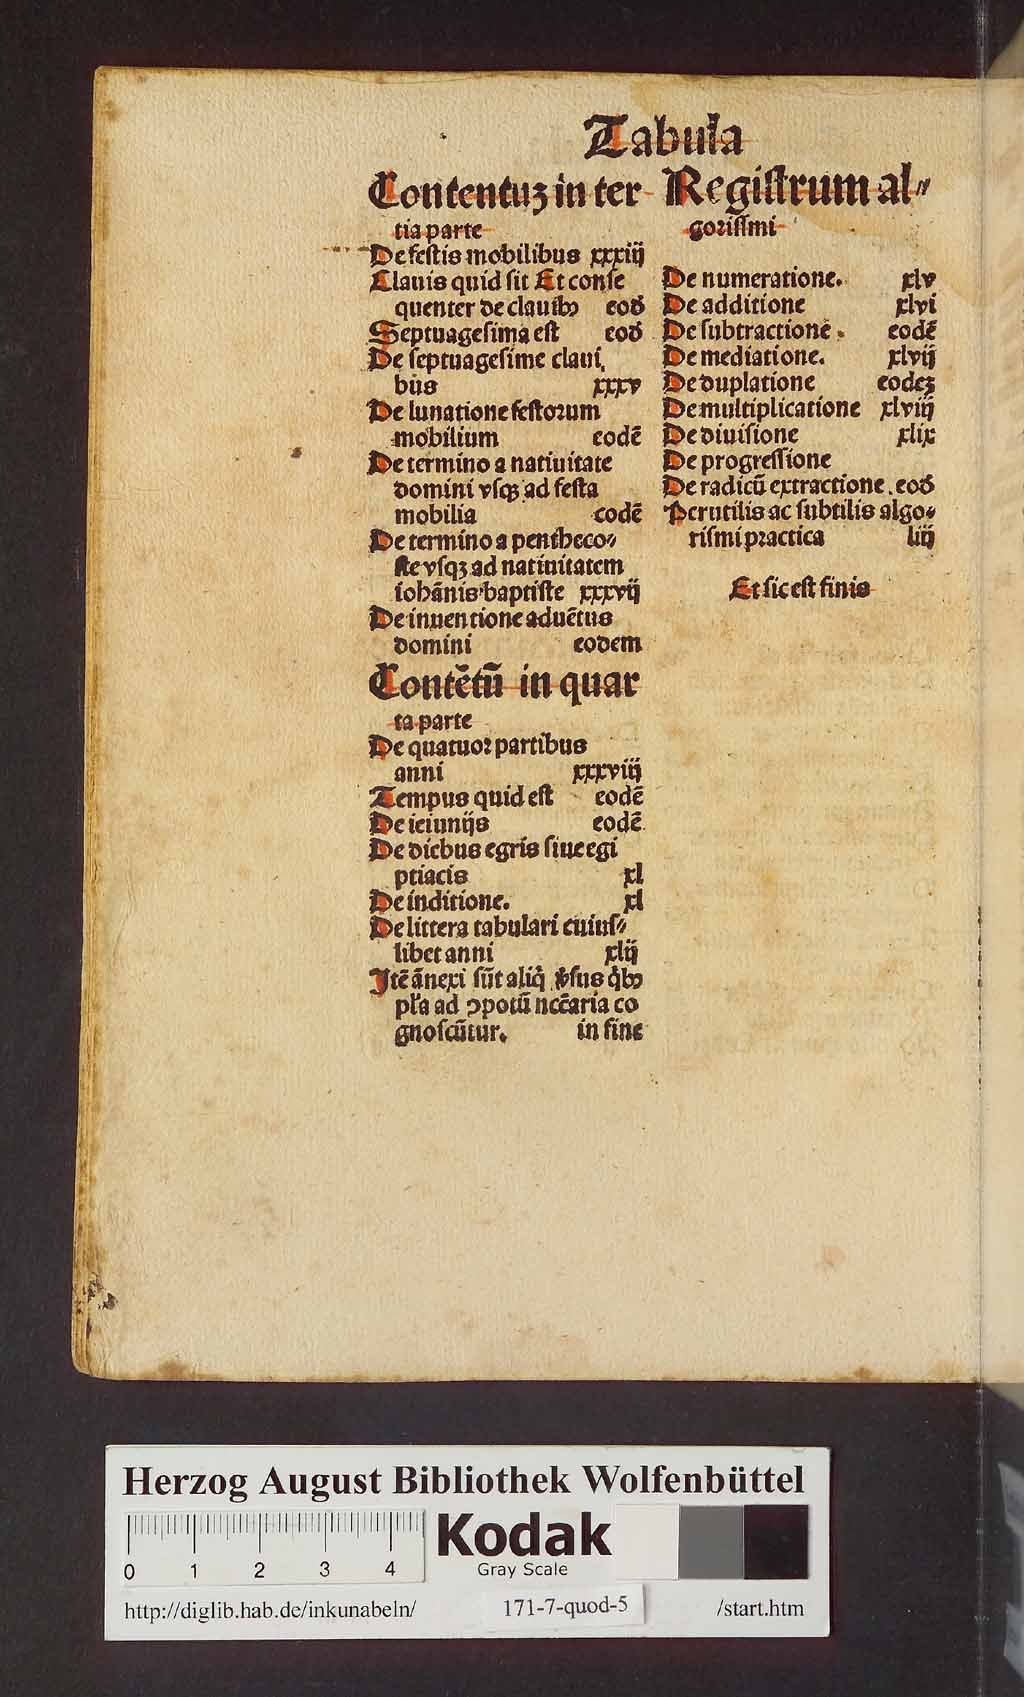 Tabula
Contentuꝫ in ter
tia parte
De festis mobilibus xxxiij
Clauis quid sit Et conse
quenter de clauibꝰ eod̄
Septuagesima est eod̄
De septuagesime claui
bus xxxv
De lunatione festorum
mobilium eodē
De termino a natiuitate
domini vsqꝫ ad festa
mobilia eodē
De termino a penthecо⸗
ste vsqꝫ ad natiuitatem
iohānis baptiste xxxvij
De inuentione aduētus
domini eodem
Contētū in quar
ta parte
De quatuor partibus
anni xxxviij
Tempus quid est eodē
De ieiunijs eodē
De diebus egris siue egi
ptiacis xl
De inditione. xl
De littera tabulari cuius⸗
libet anni xlij
Itē ānexi sūt aliq̄ ꝟsus q̄bꝰ
pl'a ad ↄpotū nccāria co
gnoscūtur. in fine
Registrum al⸗
gorissmi
De numeratione. xlv
De additione xlvi
De subtractione. eodē
De mediatione. xlvij
De duplatione eodeꝫ
De multiplicatione xlviij
De diuisione xlix
De progressione
De radicū extractione. eod̄
Perutilis ac subtilis algo⸗
rismi practica liij
Et sic est finis
Herzog August Bibliothek Wolfenbüttel
0 1 2 3 4
Kodak
Gray Scale
http://diglib.hab.de/inkunabeln/ 171-7-quod-5 /start.htm